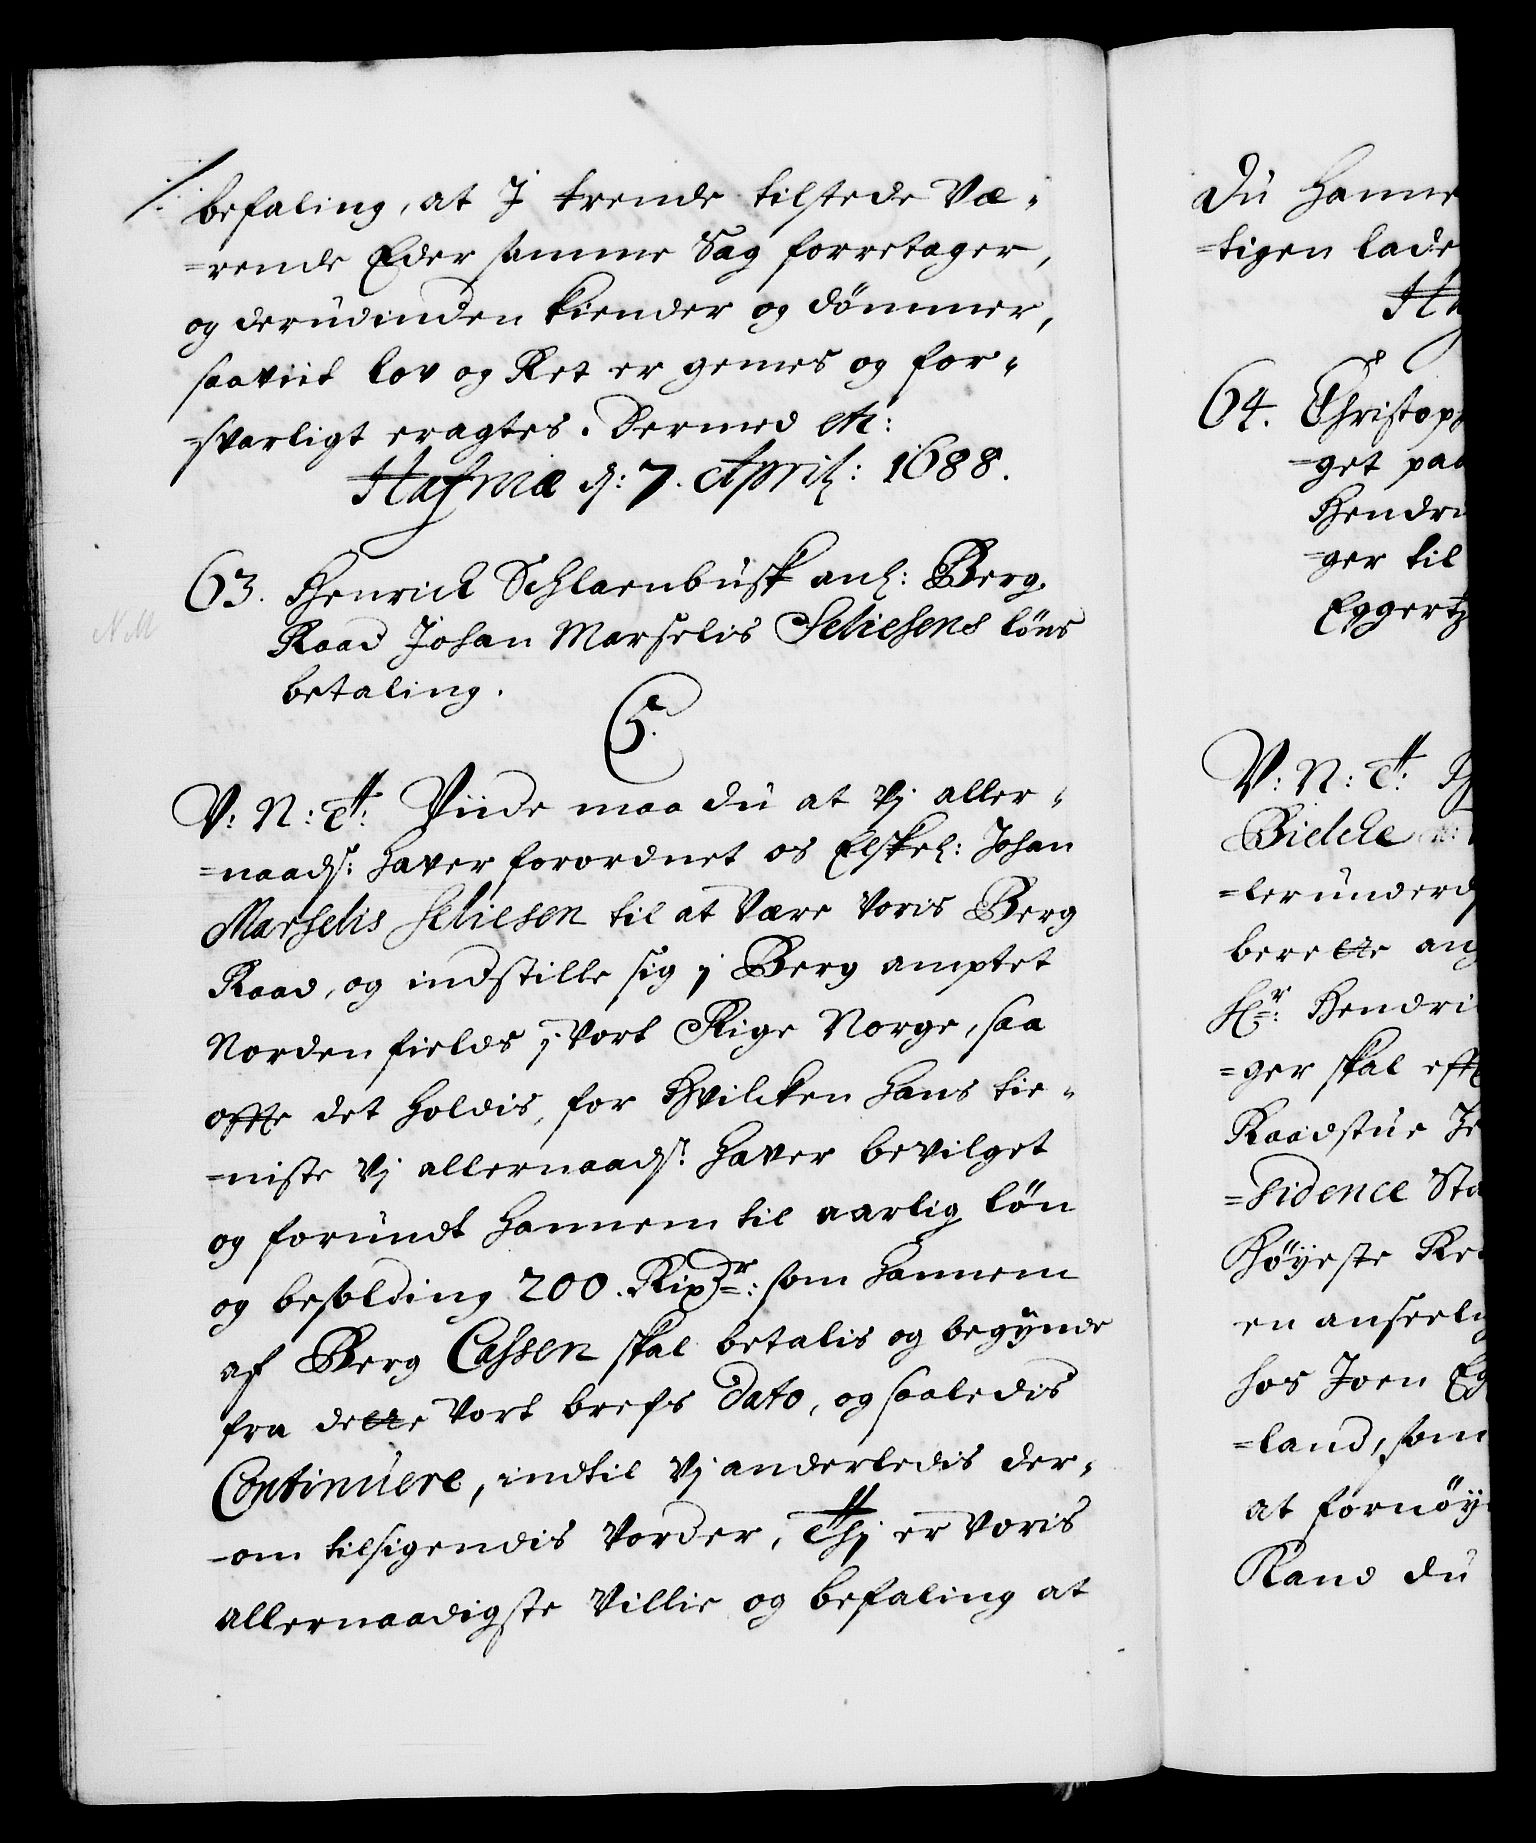 /: befaling, at J trende tilstede Væ-
=rende Eder samme Sag forretager,
og derudinden kiender og dömmer,
saaviit lov og Ret er gemes og for-
=svarligt eragtes. Dermed etc:
Hafniæ d: 7. April: 1688.
63. Henrich Schlaenbusk anl: Berg
Raad Johan Marselis Seliesens löns
betaling.
C5.
V: N: G: Viide maa du at Vj aller-
=naads: haver forordnet os Elskel: Johan
Marselis Seliesen til at være Voris Berg
Raad, og indstille sig j Berg amptet
Norden fields j Vort Rige Norge, saa
offte det holdis, for hvilcken hans tie-
=niste Vj allernaads: haver bevilget
og forundt hannem til aarlig lön
og besolding 200. Rixdr: som hannem
af Berg Cassen skal betalis og begynde
fra dette Vort brefs dato, og saaledis
Continuere, indtil Vj anderledis der-
=om tilsigendis Vorder, Thj er Voris
allernaadigste Villie og befaling at
Du hanne
=tigen lade
64. Christop
=get paa
Hendri
=ger til
Eggertz
V: N: G:
Bielcke
=lerunderd
berette ang
Hr: Hendri
=ger skal eff
Raadstue
=sidence Sta
Höyeste Re
en anseelig
hos Joen Eg
=land, som
at fornöy
Kand du